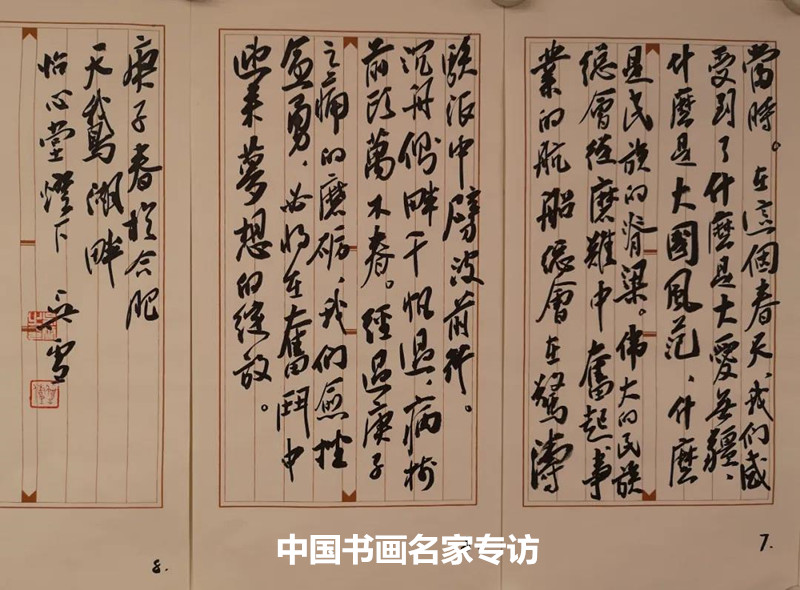 當時。在這個春天,我们感
受到了什麼是大愛無疆、
什麽是大國風范、什麽
是民族的脊梁。偉大的民族
總會從磨難中奮起,事
業的航船總會在驚濤
駭浪中劈波前行。
沉舟側畔千帆過,病樹
前頭萬木春。經過庚子
之痛的磨砺,我们愈挫
愈勇,必将在奮鬥中
迎来夢想的绽放。
庚子春於合肥
天鵝湖畔
怡心堂燈下 吴雪
7.
8.
中国书画名家专访